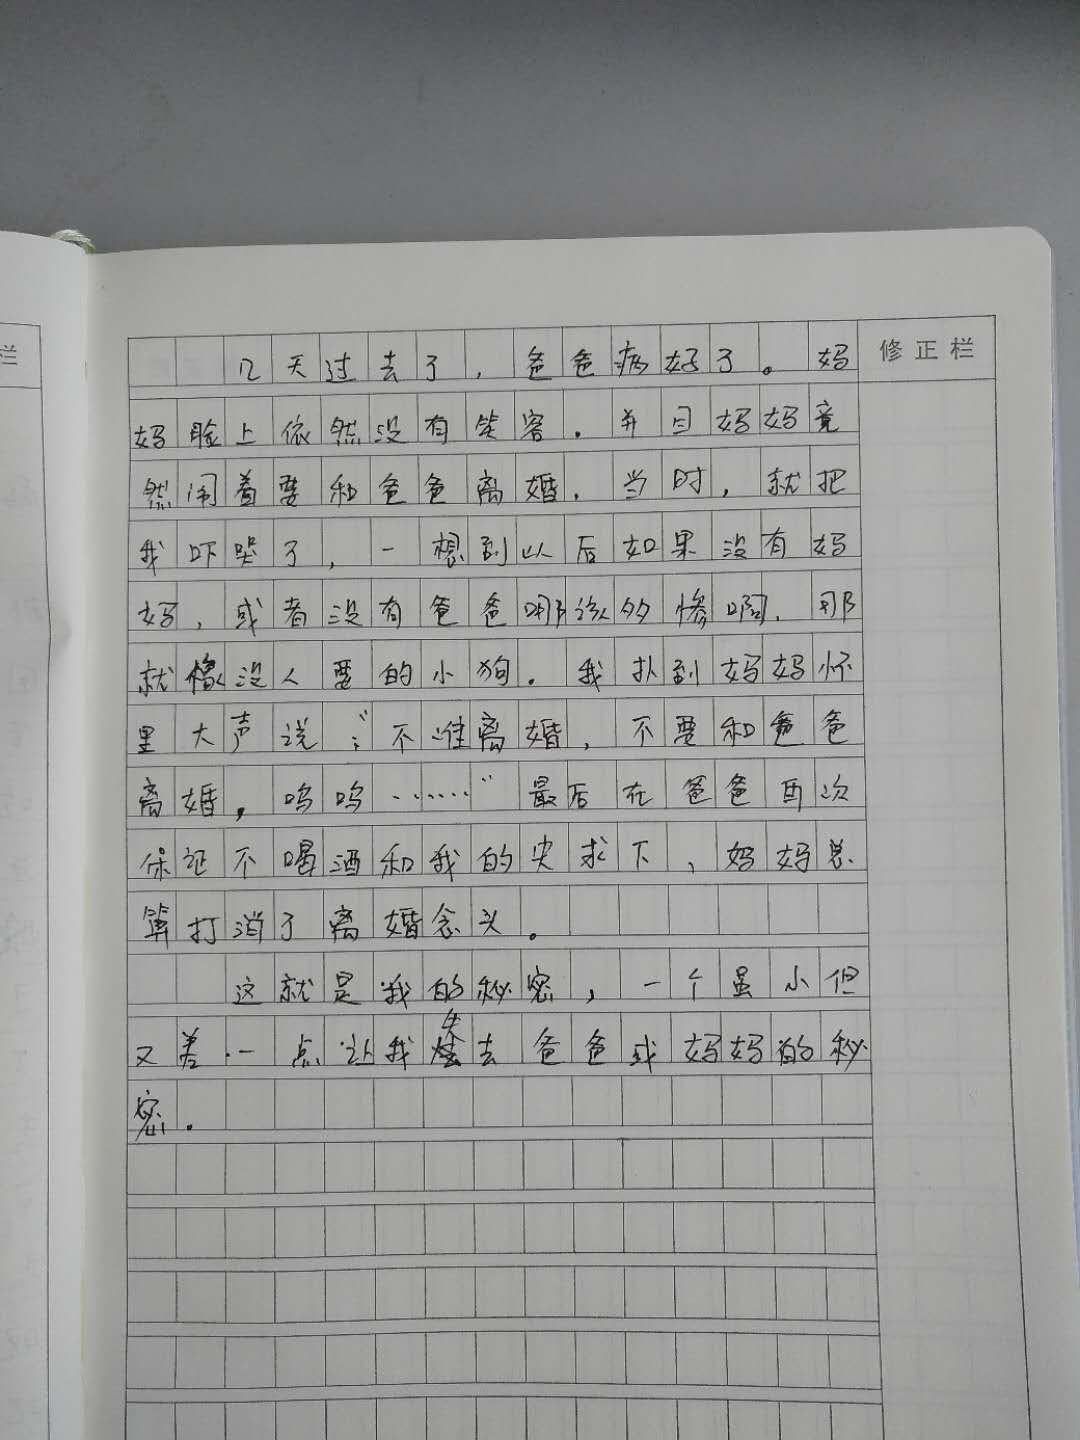 几天过去了,爸爸病好了。妈
修正栏
妈脸上依然没有笑容.并且妈妈竟
然闹着要和爸爸离婚.当时,就把
我吓哭了,一想到以后如果没有妈
妈,或者没有爸爸哪该多惨啊.那
就像没人要的小狗.我扑到妈妈怀
里大声说:“不准离婚,不要和爸爸
离婚,呜呜······”最后在爸爸再次
保证不喝酒和我的央求下,妈妈总
算打消了离婚念头。
这就是我的秘密,一个虽小但
又差一点让我失去爸爸或妈妈的秘
密.
栏